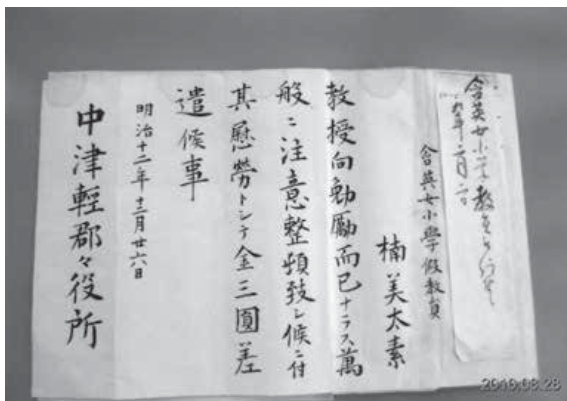 含英女小学教員
含英女小學假教員
楠美太素
教授向勉勵而已ナラス萬
般ニ注意整頓致シ候ニ付
其慰勞トシテ金三圓差
遣候事
明治十二年十二月廿六日
中津輕郡々役所
2010.08.28